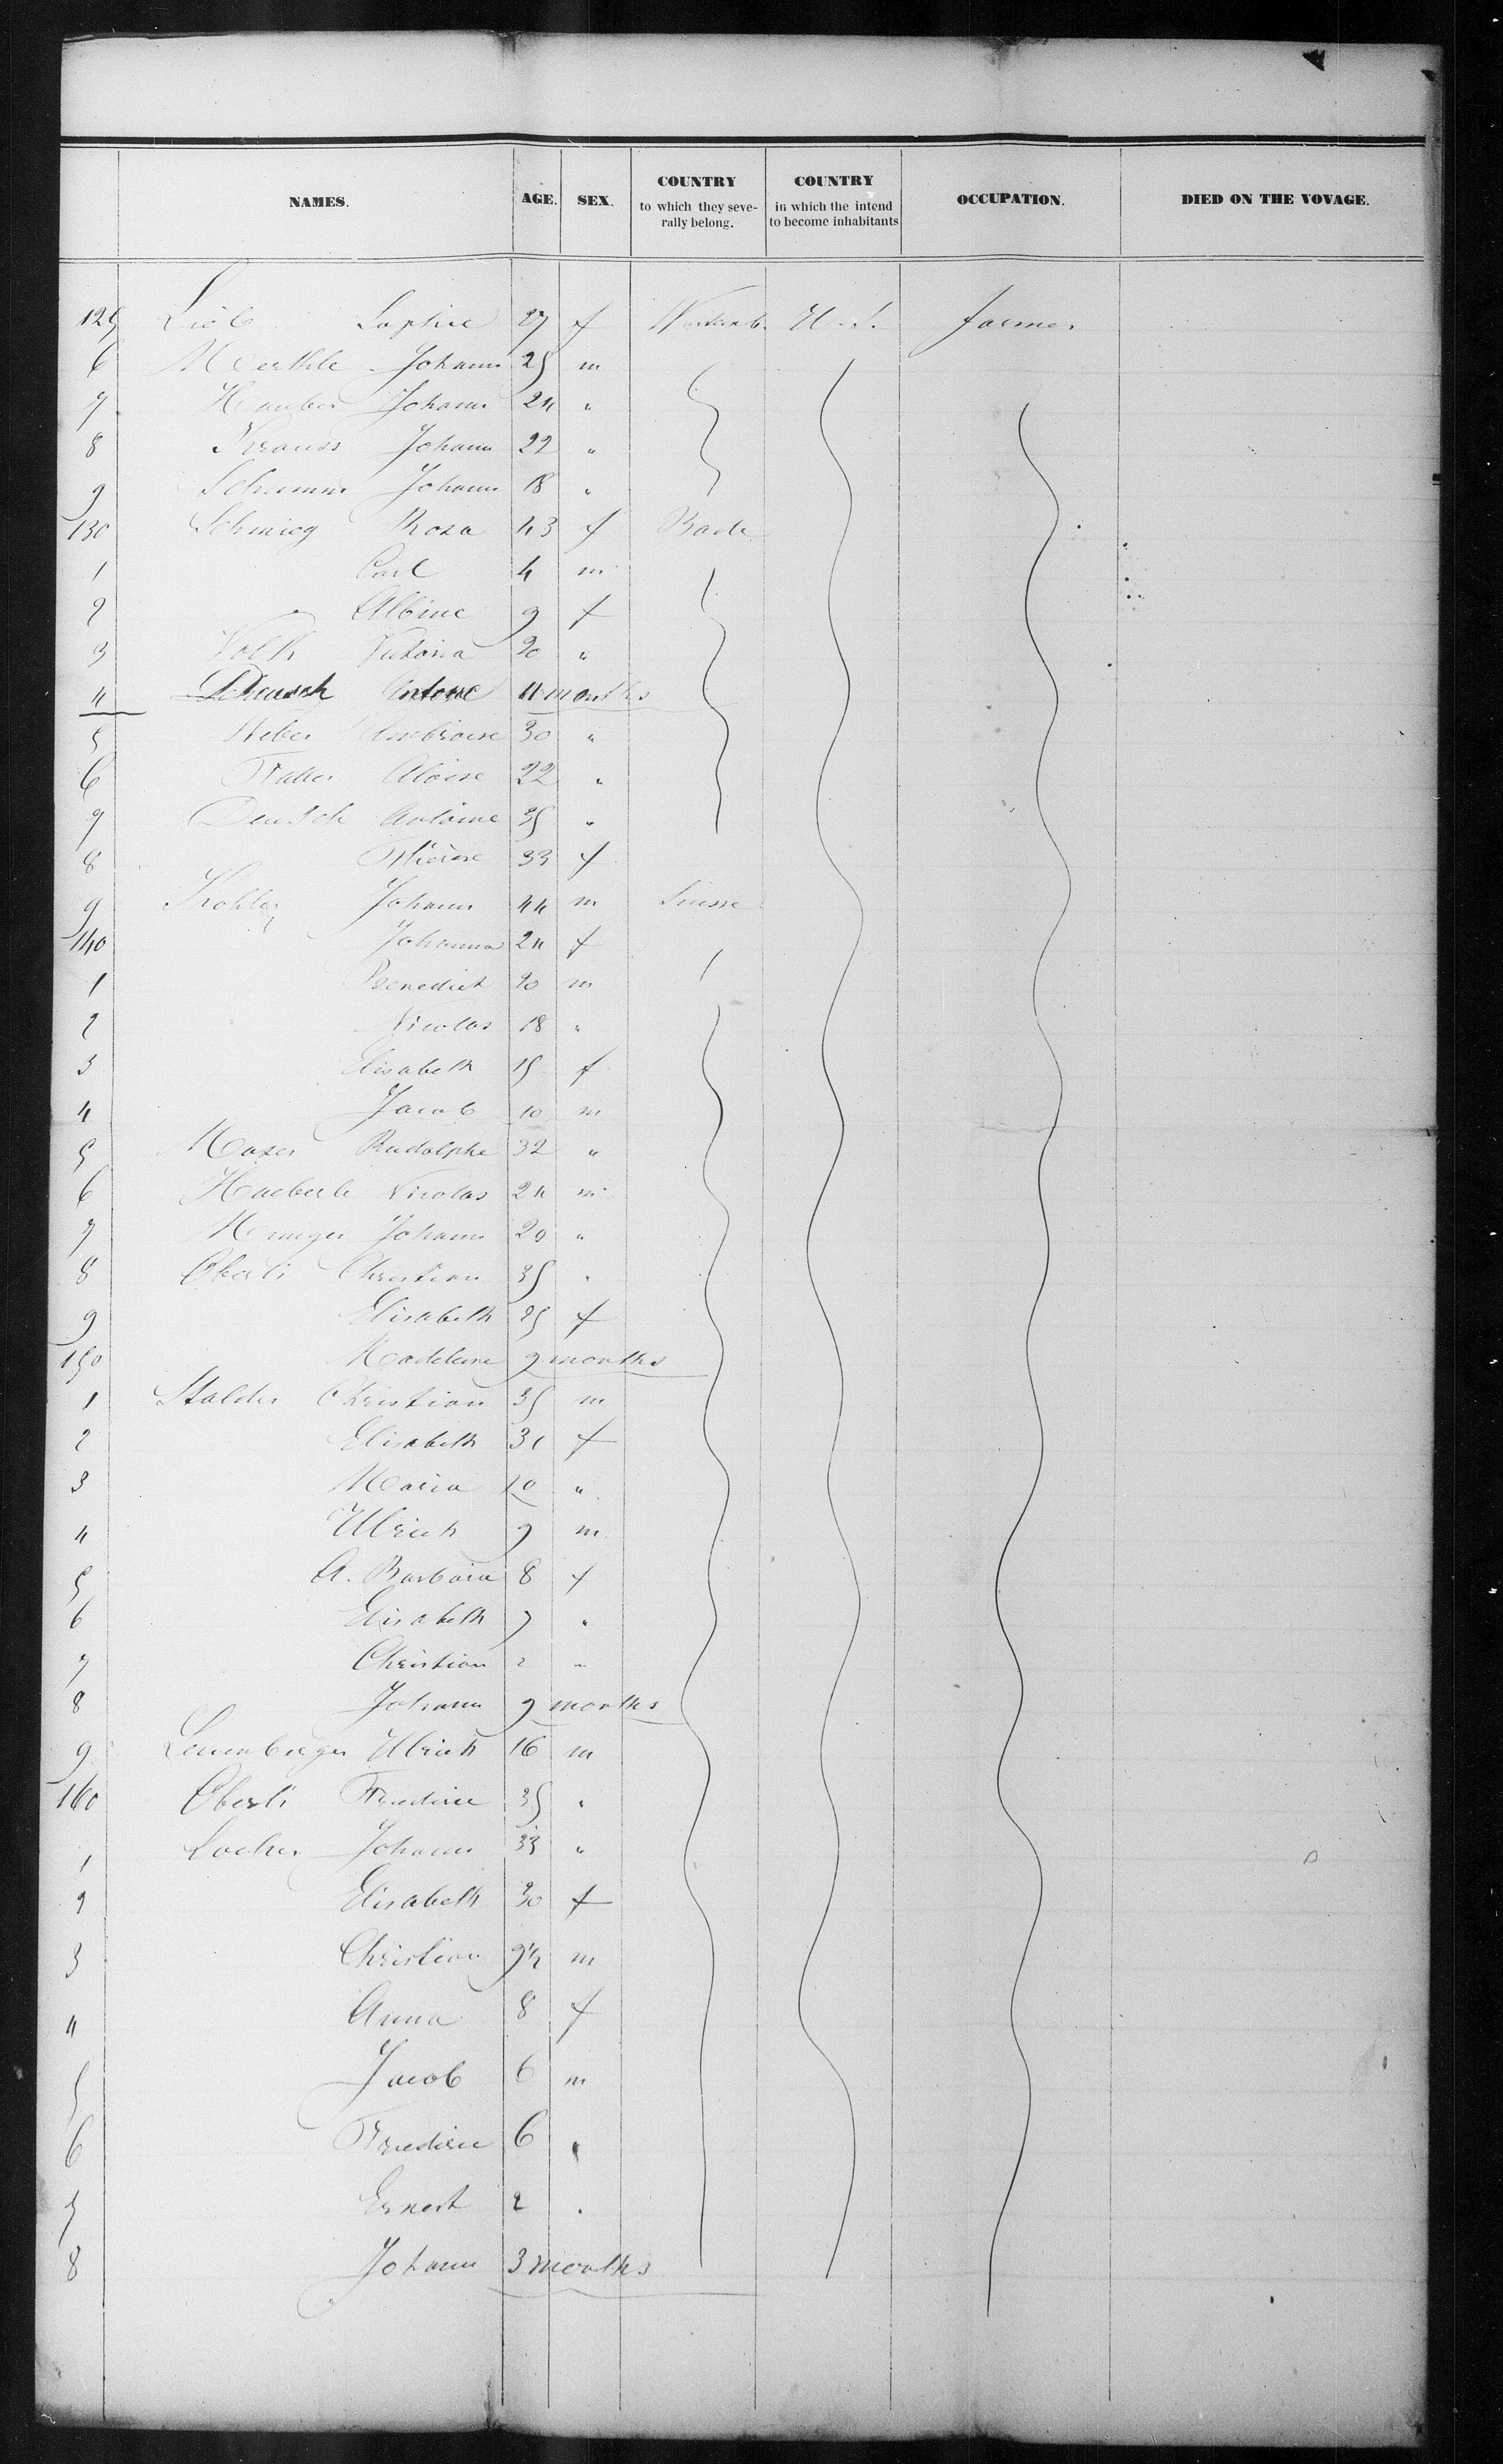 NAMES. AGE. SEX. COUNTRY to which they seve-rally belong. COUNTRY in which the intend to become inhabitants OCCUPATION. DIED ON THE VOVAGE.
125 Sophie 27 f U. S. farmer
6 Johann 25 m
7 Hauber Johann 24 "
8 Krauss Johann 22 "
9 Schumm Johann 18 "
130 Rosa 43 f Bade
1 Carl 4 m
2 Albine 9 f
3 Volk Victoria 20 "
4 Antoine 11 months
5 Weber Ambroise 30 "
6 Faller Aloise 22 "
7 Deutsch Antoine 35 "
8 Thérèse 33 f
9 Kohler Johann 44 m Suisse
140 Johanna 24 f
1 Benedict 20 m
2 Nicolas 18 "
3 Elisabeth 15 f
4 Jacob 10 m
5 Moser Rudolphe 32 "
6 Haeberli Nicolas 24 m
7 Johann 20 "
8 Oberli Christian 35 "
9 Elisabeth 25 f
150 Madeleine 9 months
1 Stalder Christian 35 m
2 Elisabeth 31 f
3 Maria 10 "
4 Ulrich 9 m
5 A. Barbara 8 f
6 Elisabeth 7 "
7 Christian 2 "
8 Johann 9 months
9 Leuenberger Ulrich 16 m
160 Oberli 35 "
1 Locher Johann 33 "
2 Elisabeth 30 f
3 Christian 9½ m
4 Anna 8 f
5 Jacob 6 m
6 6 "
7 Ernest 2 "
8 Johann 3 months